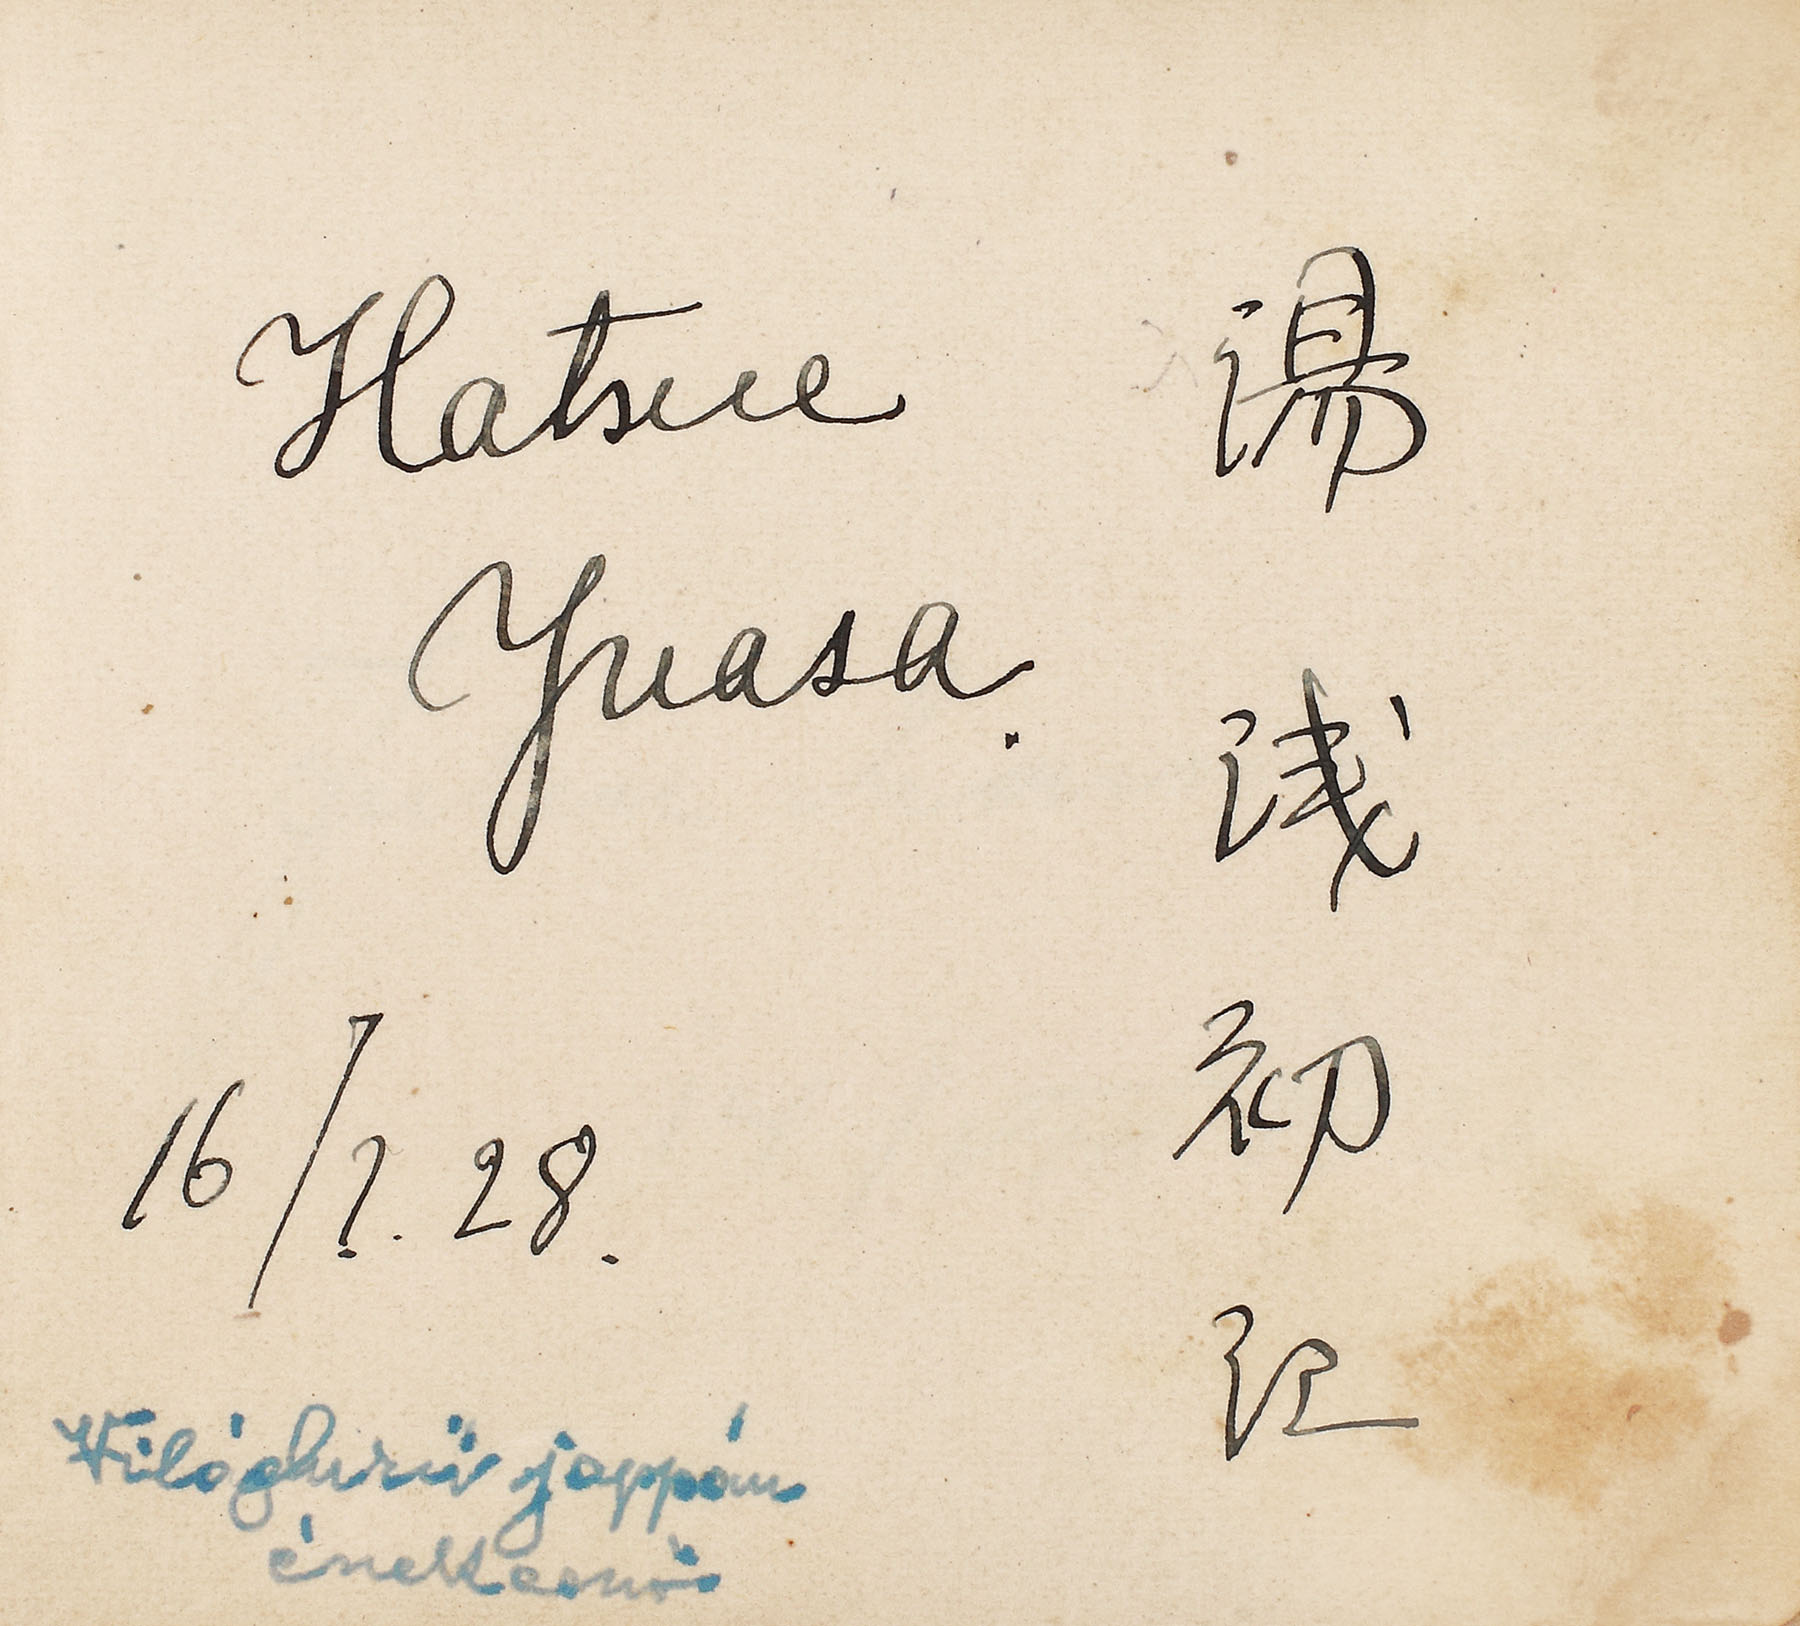 Hatsue
Yuasa.
湯浅初江
16/7. 28.
Világhírű jappán
énekesnő